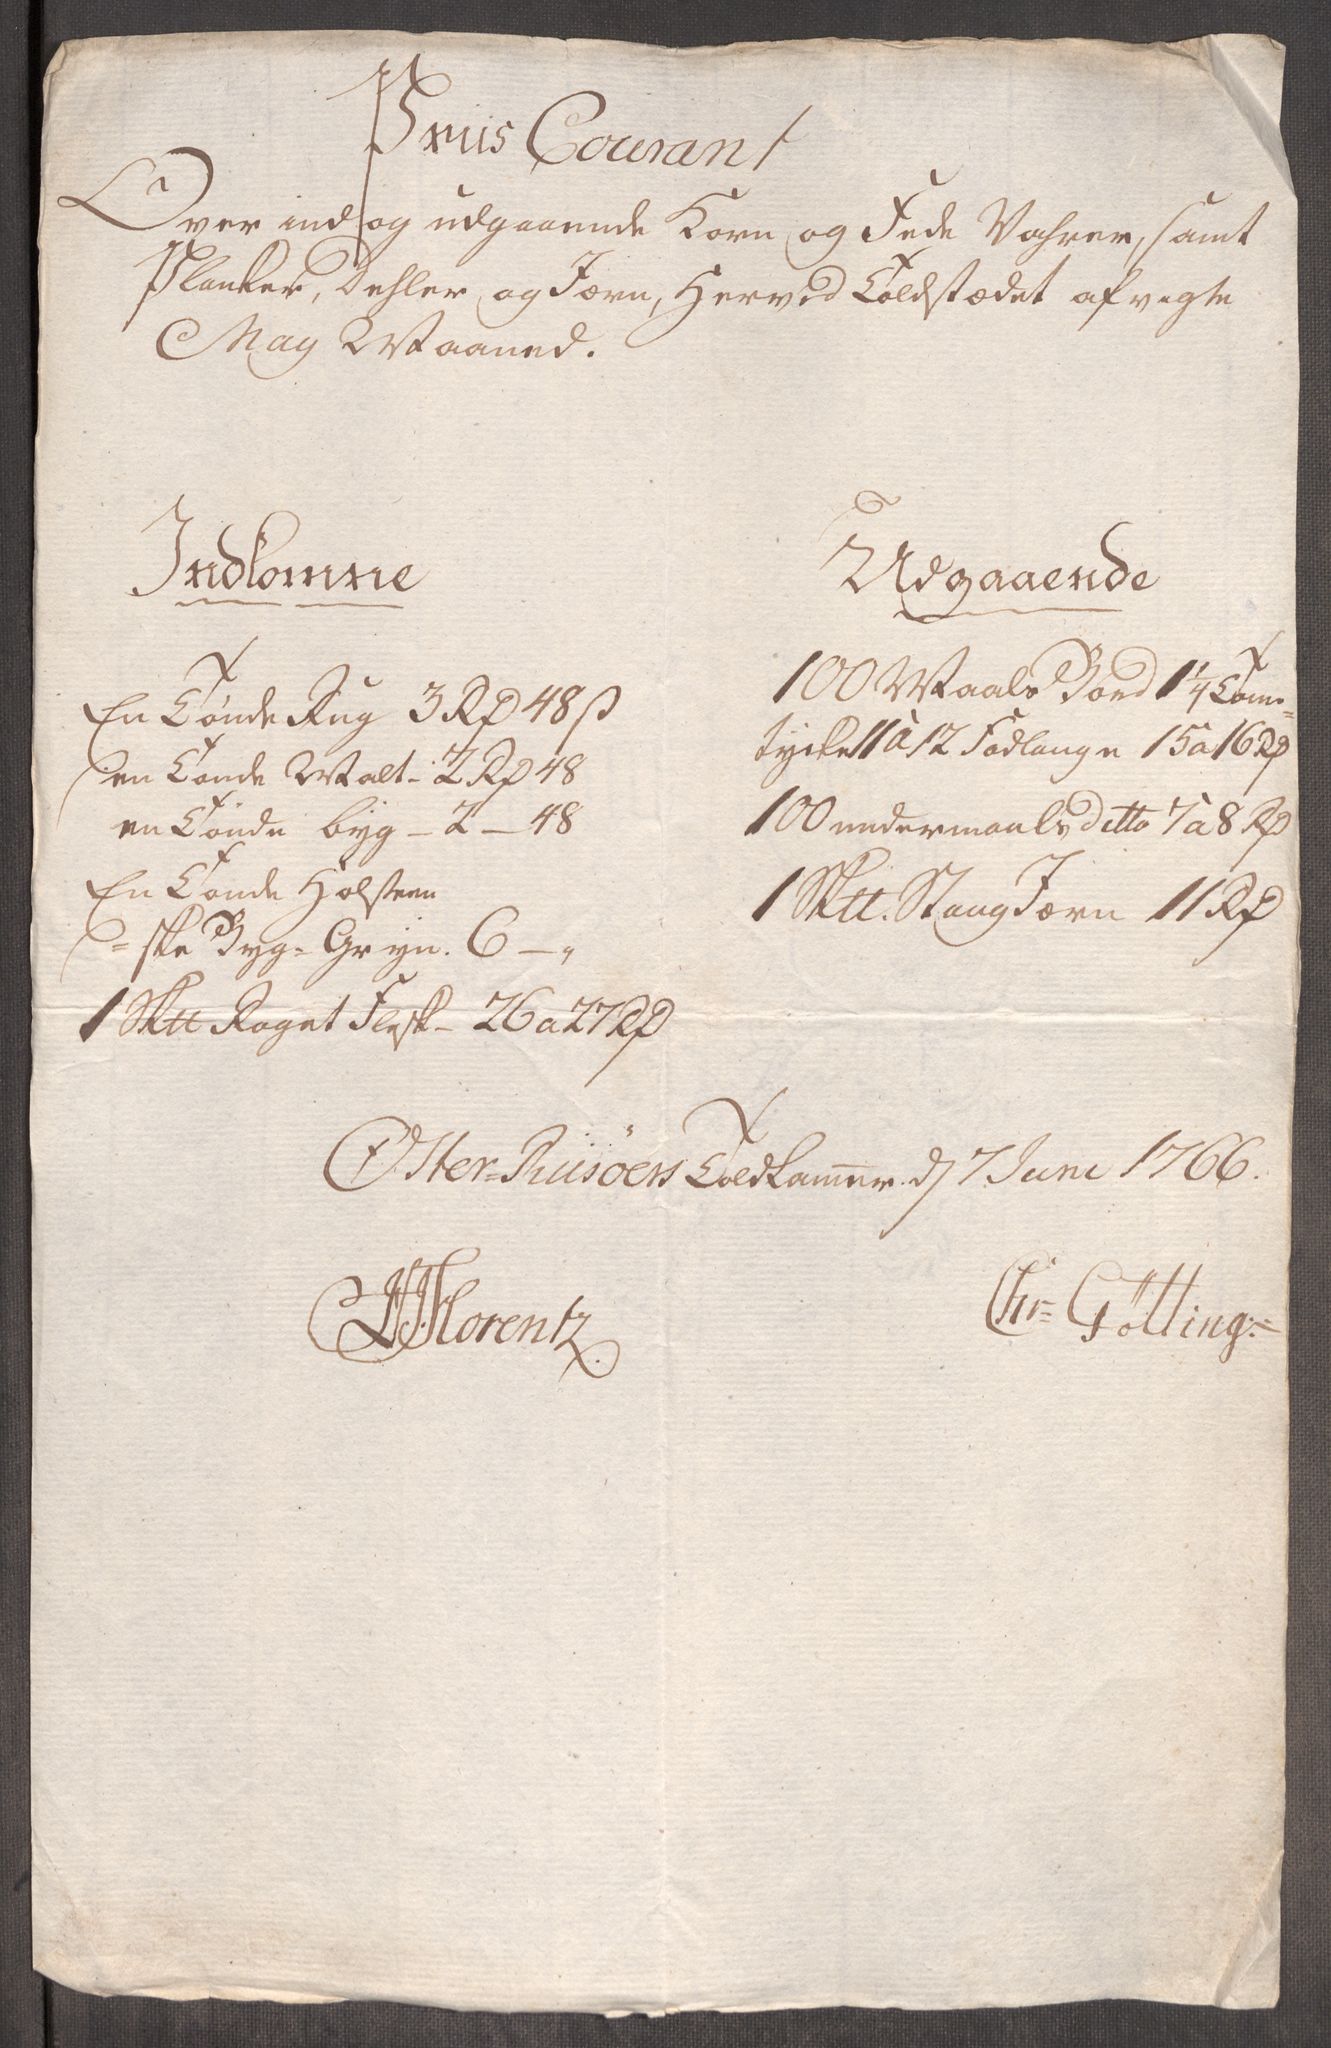 Priis Courant
Over ind og udgaaende Korn og Fede Vahrer, samt
Planker, Dehler og Jærn, Herved Toldstædet afvigte
May Maaned.
Indkomne
En Tønde Rug 3 Rd 48 ß
en Tønde Malt - 2 Rd 48
en Tønde byg - 2 - 48
En Tønde Holsteen
=ske Byg= Gryn. 6 - "
1 Sktt Røget Flesk - 26 a 27 Rd
Udgaaende
100 Maals Bord 1 1/4 Tom=
tycke 11 à 12 Fod lange 15 a 16 Rd
100 undermaals ditto 7 à 8 Rd
1 Sktt. Stang Jærn 11 Rd
Øster=Riisöers Toldkammer d 7 Juni 1766.
Florentz.
Chr= Götting=